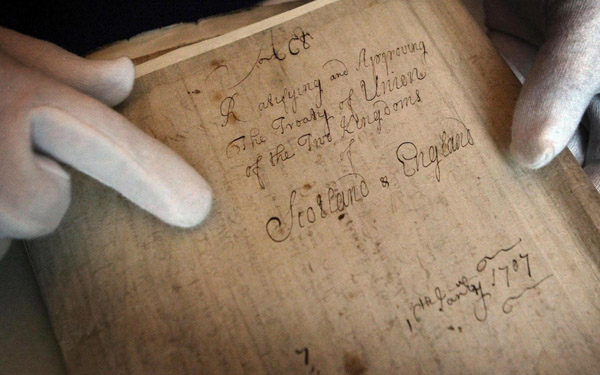 Act
Ratifying and Approving
The Treaty of Union
of the Two Kingdoms
of
Scotland & England
16th January 1707